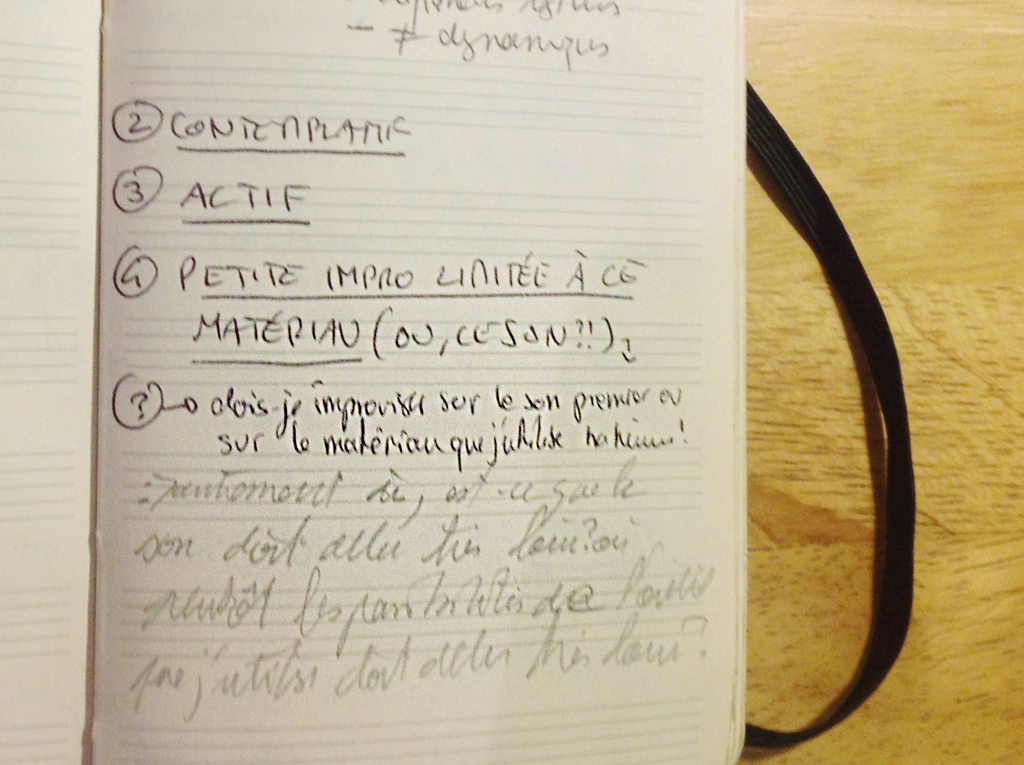 - ≠ dynamiques
② CONTEMPLATIF
③ ACTIF
④ PETITE IMPRO LIMITÉE À CE
MATÉRIAU (OU, CE SON?!)
(?)→ dois-je improviser sur le son premier ou
sur le matériau que j'utilise
: autrement dit, est-ce que le
son doit aller très loin? ou
plutôt les possibilités de l'outil
que j'utilise doit aller très loin?